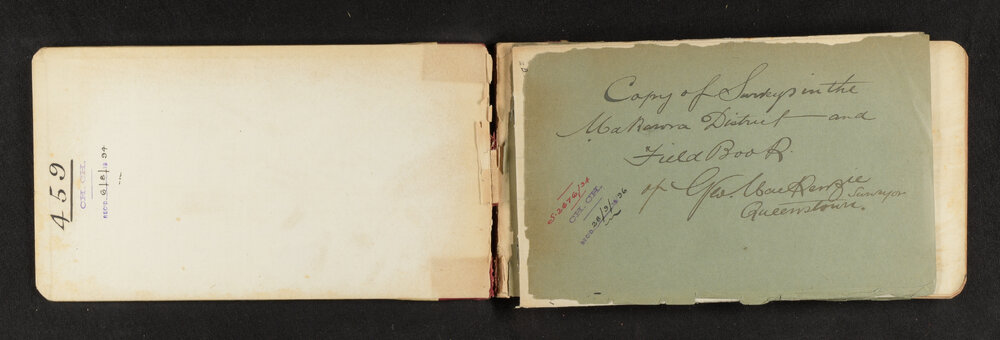 459
CH. CH.
REC'D. 6/8/94
Copy of Surveys in the
Makarora District and
Field Book
of Geo. MacKenzie
Surveyor
Queenstown.
CH. CH.
REC'D. 28/9/96